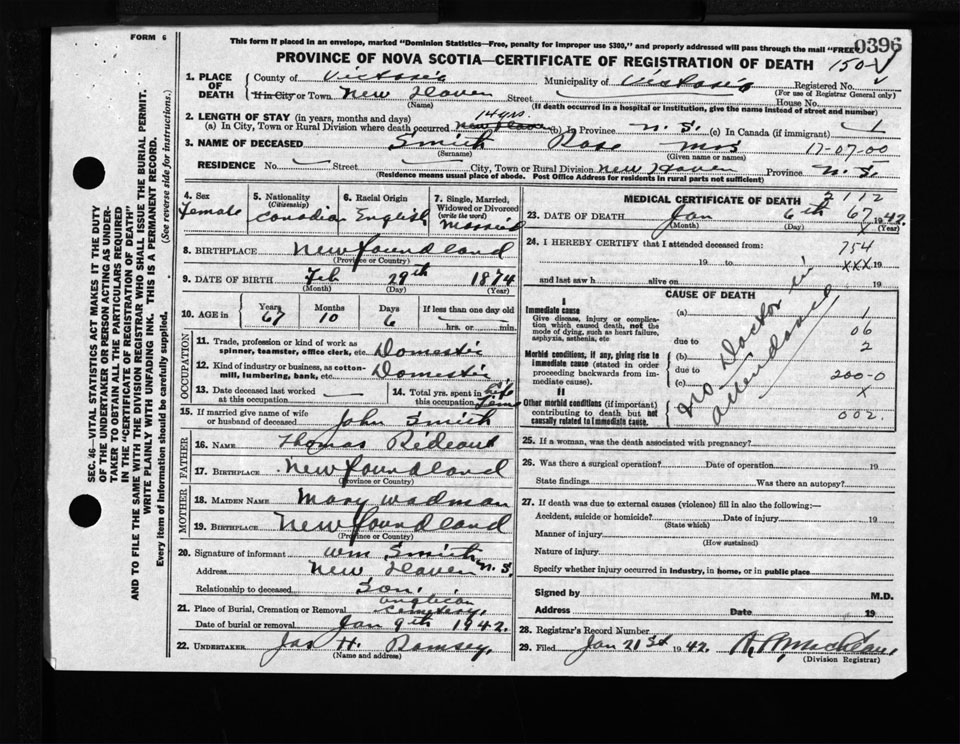 FORM 6
This form if placed in an envelope, marked "Dominion Statistics—Free, penalty for improper use $300," and properly addressed will pass through the mail "FREE"
0396
PROVINCE OF NOVA SCOTIA—CERTIFICATE OF REGISTRATION OF DEATH
150
1. PLACE OF DEATH
County of Victoria Municipality of Victoria Registered No.
(For use of Registrar General only)
If in City or Town New Haven Street House No.
(Name) (If death occurred in a hospital or institution, give the name instead of street and number)
2. LENGTH OF STAY (in years, months and days)
14 yrs.
(a) In City, Town or Rural Division where death occurred New Haven (b) In Province N. S. (c) In Canada (if immigrant) 1
3. NAME OF DECEASED Smith Rose Mrs 17-07-00
(Surname) (Given name or names)
RESIDENCE No. Street City, Town or Rural Division New Haven Province N. S.
(Residence means usual place of abode. Post Office Address for residents in rural parts not sufficient)
4. Sex Female
5. Nationality (Citizenship) Canadian
6. Racial Origin English
7. Single, Married, Widowed or Divorced (write the word) Married
8. BIRTHPLACE Newfoundland
(Province or Country)
9. DATE OF BIRTH Feb 29th 1874
(Month) (Day) (Year)
10. AGE in Years 67 Months 10 Days 6 If less than one day old hrs. or min.
OCCUPATION
11. Trade, profession or kind of work as spinner, teamster, office clerk, etc. Domestic
12. Kind of industry or business, as cotton-mill, lumbering, bank, etc. Domestic
13. Date deceased last worked at this occupation
14. Total yrs. spent in this occupation Life Time
15. If married give name of wife or husband of deceased John Smith
FATHER
16. NAME Thomas Rideout
17. BIRTHPLACE Newfoundland
(Province or Country)
MOTHER
18. MAIDEN NAME Mary Wadman
19. BIRTHPLACE Newfoundland
(Province or Country)
20. Signature of informant Wm Smith
Address New Haven N. S.
Relationship to deceased Son.
21. Place of Burial, Cremation or Removal Anglican Cemetery.
Date of burial or removal Jan 9th 1942.
22. UNDERTAKER Jas H. Ramsey,
(Name and address)
MEDICAL CERTIFICATE OF DEATH
23. DATE OF DEATH Jan 6th 67 1942
(Month) (Day) (Year)
24. I HEREBY CERTIFY that I attended deceased from:
754
19 to XXX 19
and last saw h alive on 19
CAUSE OF DEATH
I
Immediate cause
Give disease, injury or complication which caused death, not the mode of dying, such as heart failure, asphyxia, asthenia, etc
(a) 1
due to 06
Morbid conditions, if any, giving rise to immediate cause (stated in order proceeding backwards from immediate cause).
(b) 2
due to
(c) 200-0
II
Other morbid conditions (if important) contributing to death but not causally related to immediate cause.
X
002.
No Doctor in attendance
25. If a woman, was the death associated with pregnancy?
26. Was there a surgical operation? Date of operation 19
State findings Was there an autopsy?
27. If death was due to external causes (violence) fill in also the following:—
Accident, suicide or homicide? Date of injury 19
(State which)
Manner of injury
(How sustained)
Nature of injury
Specify whether injury occurred in industry, in home, or in public place
Signed by M.D.
Address Date 19
28. Registrar's Record Number
29. Filed Jan 21st 1942.
(Division Registrar)
SEC. 46—VITAL STATISTICS ACT MAKES IT THE DUTY
OF THE UNDERTAKER OR PERSON ACTING AS UNDER-
TAKER TO OBTAIN ALL THE PARTICULARS REQUIRED
IN THE "CERTIFICATE OF REGISTRATION OF DEATH"
AND TO FILE THE SAME WITH THE DIVISION REGISTRAR WHO SHALL ISSUE THE BURIAL PERMIT.
WRITE PLAINLY WITH UNFADING INK. THIS IS A PERMANENT RECORD.
Every item of information should be carefully supplied. (See reverse side for instructions.)